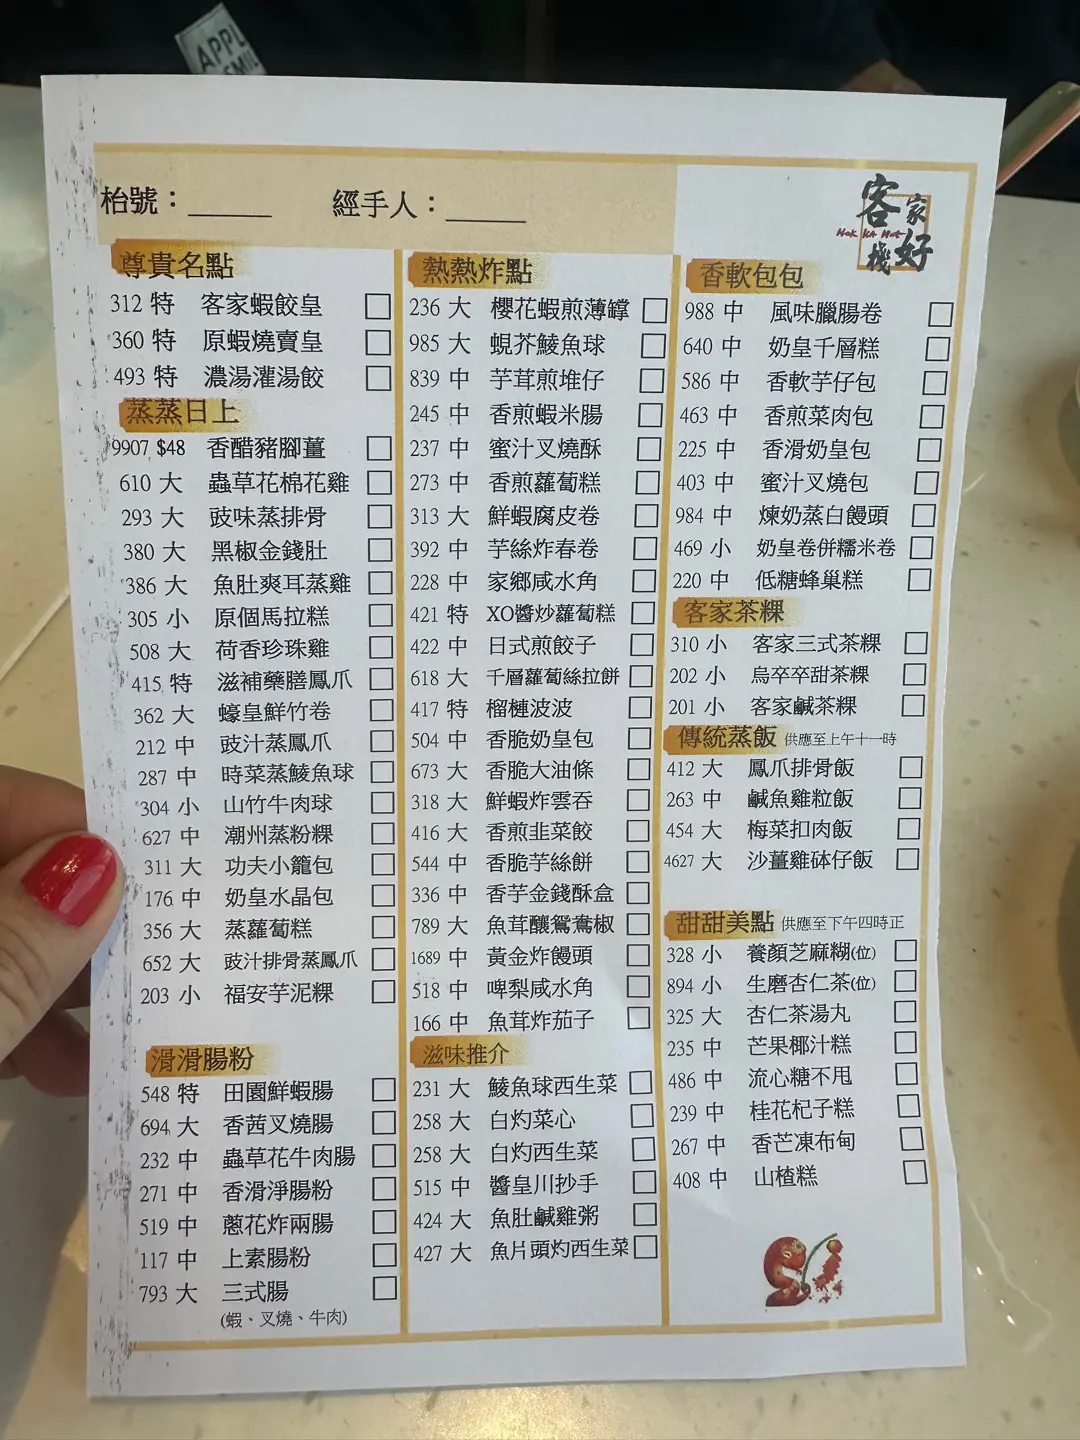 APPL
SMIL
枱號：______ 經手人：______
客家好棧
Hak Ka Hut
尊貴名點
312 特 客家蝦餃皇
360 特 原蝦燒賣皇
493 特 濃湯灌湯餃
蒸蒸日上
9907 $48 香醋豬腳薑
610 大 蟲草花棉花雞
293 大 豉味蒸排骨
380 大 黑椒金錢肚
386 大 魚肚爽耳蒸雞
305 小 原個馬拉糕
508 大 荷香珍珠雞
415 特 滋補藥膳鳳爪
362 大 蠔皇鮮竹卷
212 中 豉汁蒸鳳爪
287 中 時菜蒸鯪魚球
304 小 山竹牛肉球
627 中 潮州蒸粉粿
311 大 功夫小籠包
176 中 奶皇水晶包
356 大 蒸蘿蔔糕
652 大 豉汁排骨蒸鳳爪
203 小 福安芋泥粿
滑滑腸粉
548 特 田園鮮蝦腸
694 大 香茜叉燒腸
232 中 蟲草花牛肉腸
271 中 香滑淨腸粉
519 中 蔥花炸兩腸
117 中 上素腸粉
793 大 三式腸
(蝦、叉燒、牛肉)
熱熱炸點
236 大 櫻花蝦煎薄罉
985 大 蜆芥鯪魚球
839 中 芋茸煎堆仔
245 中 香煎蝦米腸
237 中 蜜汁叉燒酥
273 中 香煎蘿蔔糕
313 大 鮮蝦腐皮卷
392 中 芋絲炸春卷
228 中 家鄉咸水角
421 特 XO醬炒蘿蔔糕
422 中 日式煎餃子
618 大 千層蘿蔔絲拉餅
417 特 榴槤波波
504 中 香脆奶皇包
673 大 香脆大油條
318 大 鮮蝦炸雲吞
416 大 香煎韭菜餃
544 中 香脆芋絲餅
336 中 香芋金錢酥盒
789 大 魚茸釀鴛鴦椒
1689 中 黃金炸饅頭
518 中 啤梨咸水角
166 中 魚茸炸茄子
滋味推介
231 大 鯪魚球西生菜
258 大 白灼菜心
258 大 白灼西生菜
515 中 醬皇川抄手
424 大 魚肚鹹雞粥
427 大 魚片頭灼西生菜
香軟包包
988 中 風味臘腸卷
640 中 奶皇千層糕
586 中 香軟芋仔包
463 中 香煎菜肉包
225 中 香滑奶皇包
403 中 蜜汁叉燒包
984 中 煉奶蒸白饅頭
469 小 奶皇卷併糯米卷
220 中 低糖蜂巢糕
客家茶粿
310 小 客家三式茶粿
202 小 烏卒卒甜茶粿
201 小 客家鹹茶粿
傳統蒸飯 供應至上午十一時
412 大 鳳爪排骨飯
263 中 鹹魚雞粒飯
454 大 梅菜扣肉飯
4627 大 沙薑雞砵仔飯
甜甜美點 供應至下午四時正
328 小 養顏芝麻糊(位)
894 小 生磨杏仁茶(位)
325 大 杏仁茶湯丸
235 中 芒果椰汁糕
486 中 流心糖不甩
239 中 桂花杞子糕
267 中 香芒凍布甸
408 中 山楂糕